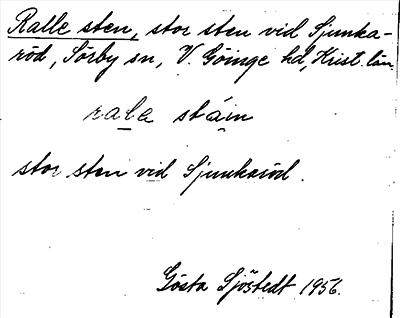 Ralle sten, stor sten vid Sjunka-
röd, Sörby sn, V. Göinge hd, Krist. län
rale stáin
stor sten vid Sjunkaröd.
Gösta Sjöstedt 1956.